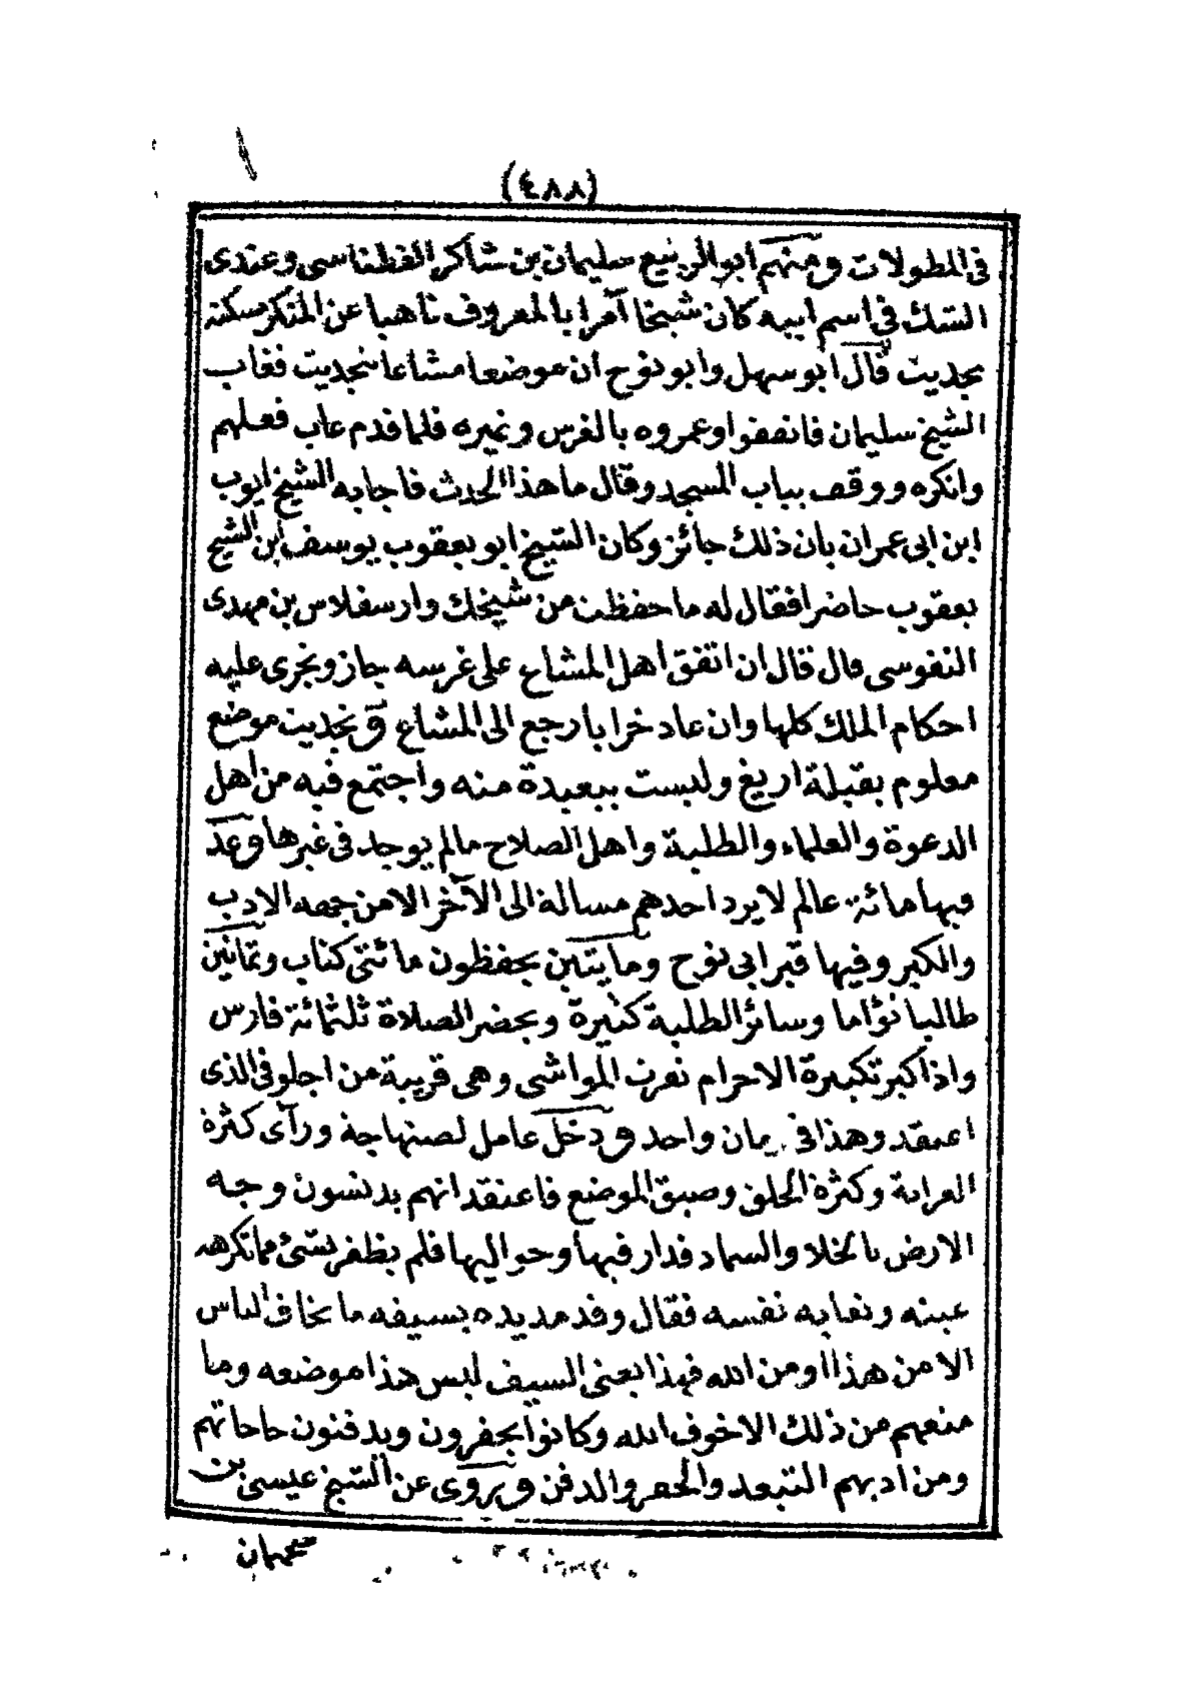 (٤٨٨)
في المطولات ومنهم ابو الربيع سليمان بن شاكر الفطناسي وعندى
الشك في اسم ابيه كان شيخا آمرا بالمعروف ناهيا عن المنكر مسكنه
بجديت قال ابو سهل وابو نوح ان موضعا مشاعا بتجديت فغاب
الشيخ سليمان فاتفقوا وعمروه بالغرس وغيره فلما قدم عاب فعلهم
وانكره ووقف بباب المسجد وقال ما هذا الحدث فاجابه الشيخ ايوب
ابن ابى عمران بان ذلك جائز وكان الشيخ ابو يعقوب يوسف ابن الشيخ
يعقوب حاضرا فقال له ما حفظت من شيخك وارسفلاس بن مهدى
النفوسى قال قال ان اتفق اهل المشاع على غرسه جاز ويجرى عليه
احكام الملك كلها وان عاد خرابا رجع الى المشاع وتجديت موضع
معلوم بقبلة اريغ وليست ببعيدة منه واجتمع فيه من اهل
الدعوة والعلماء والطلبة واهل الصلاح مالم يوجد فى غيرها وعد
فيها مائة عالم لا يرد احدهم مسالة الى الآخر الا من جهه الادب
والكبر وفيها قبر ابى نوح ومايتين يحفظون مائتى كتاب وثمانين
طالبا نؤاما وسائر الطلبة كثيرة ويحضر الصلاة ثلثمائة فارس
واذا كبر تكبيرة الاحرام نفرت المواشى وهى قريبة من اجلو فى الذى
اعتقد وهذا فى زمان واحد ودخل عامل لصنهاجة ورآى كثرة
العرابة وكثرة الخلق وضيق الموضع فاعتقد انهم يدنسون وجه
الارض بالخلا والسماد فدار فيها وحواليها فلم يظفر بشئ مما تكرهه
عينه وتعابه نفسه فقال وقد مد يده بسيفه ما يخاف الناس
الا من هذا او من الله فهذا يعنى السيف ليس هذا موضعه وما
منعهم من ذلك الا خوف الله وكانوا يحفرون ويدفنون حاجاتهم
ومن ادبهم التبعد والحفر والدفن ويروى عن الشيخ عيسى بن